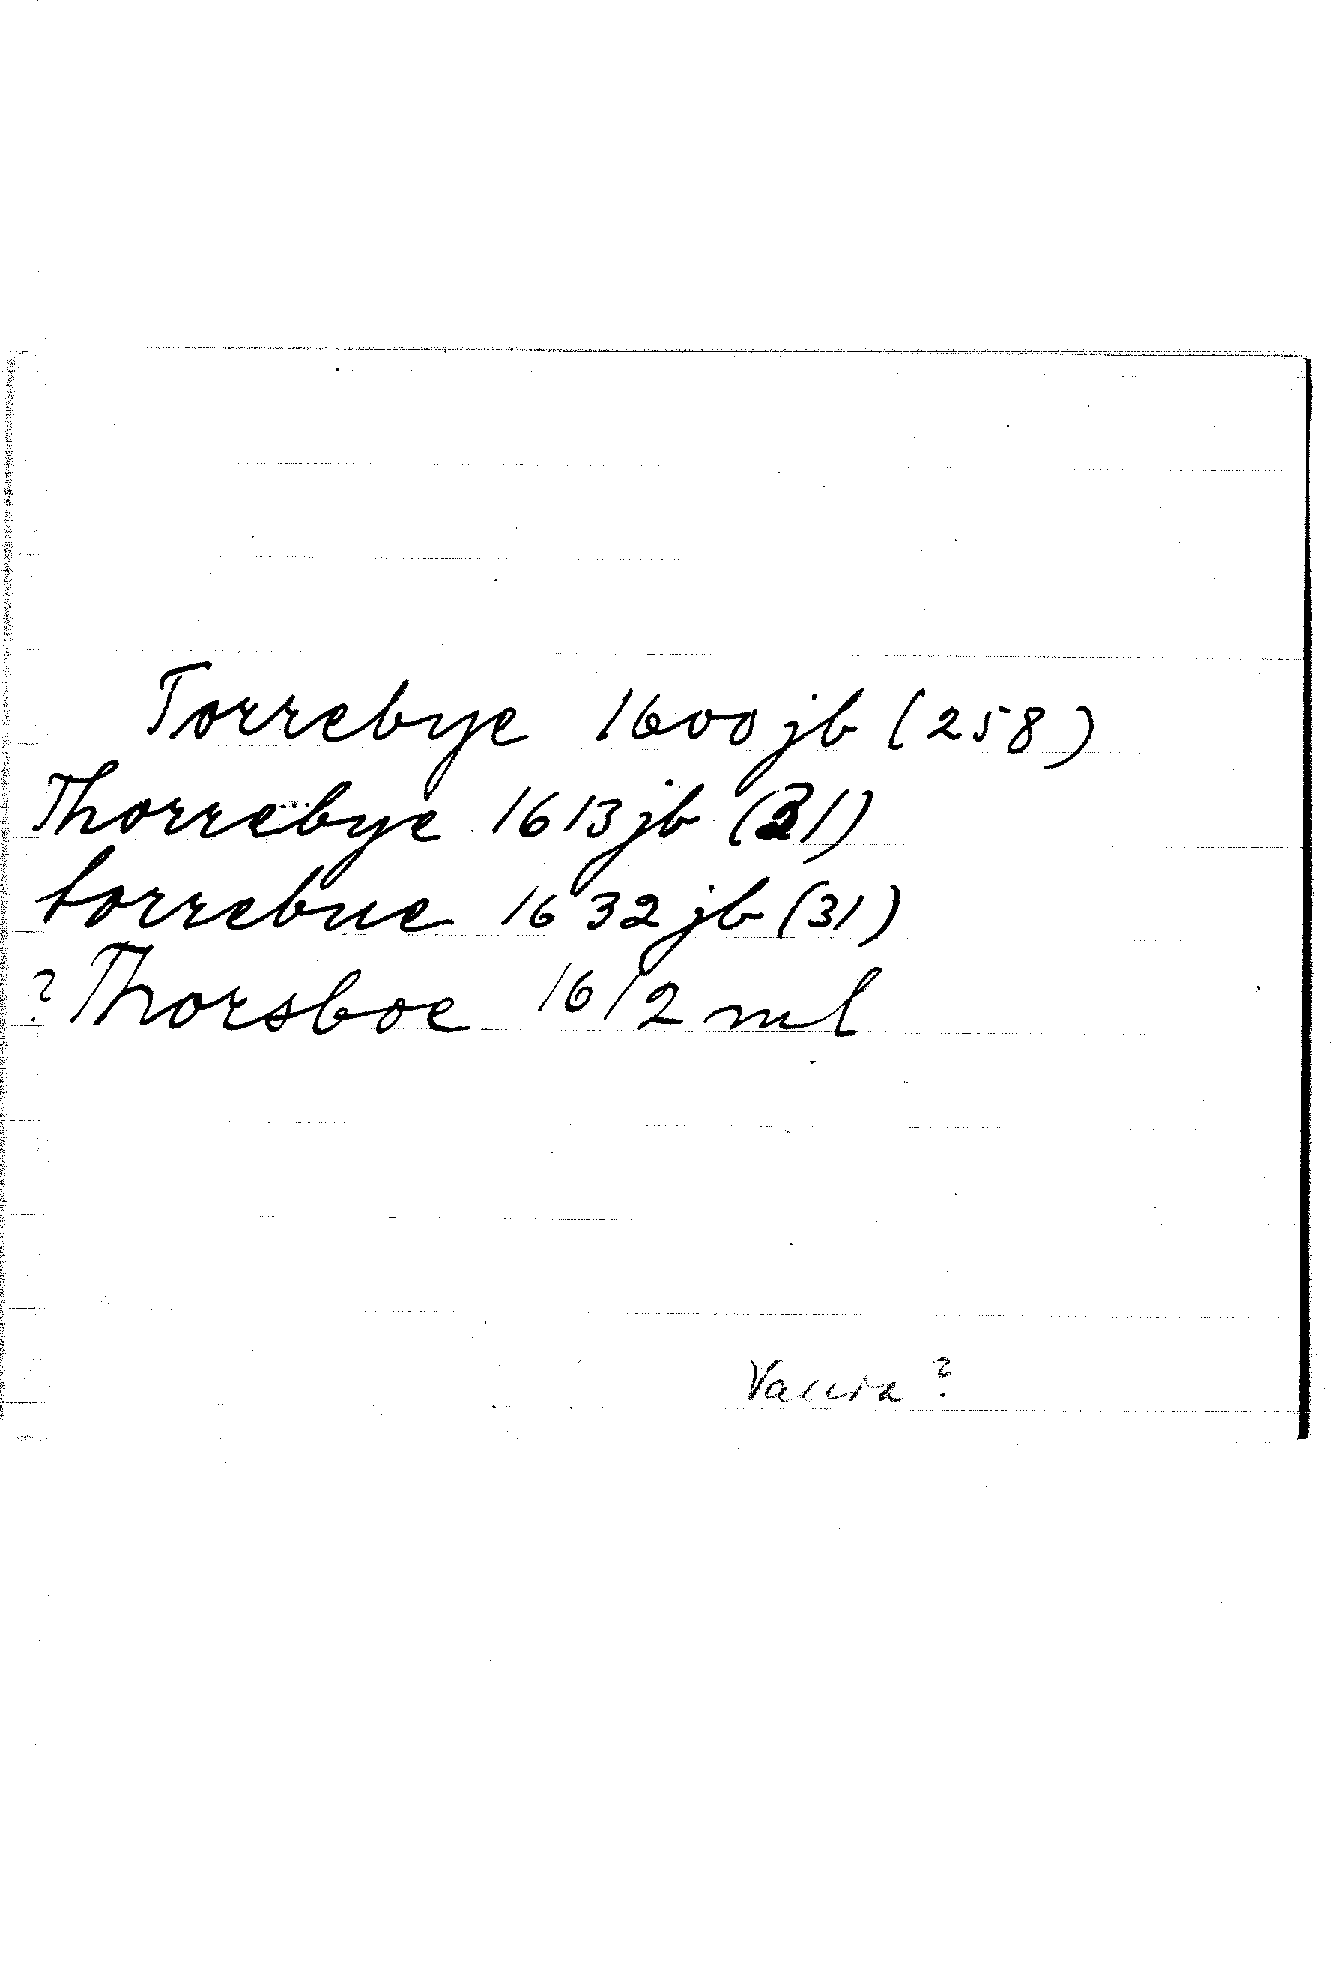 Torrebye 1600 jb (258)
Thorrebye 1613 jb (31)
torrebue 1632 jb (31)
? Thorsboe 1612 ml